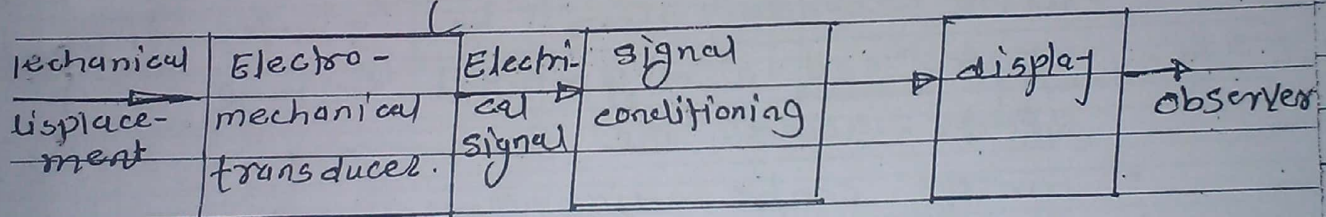 Mechanical displacement
Electro-
mechanical
transducer.
Electri-
cal
signal
signal
conditioning
display
observer